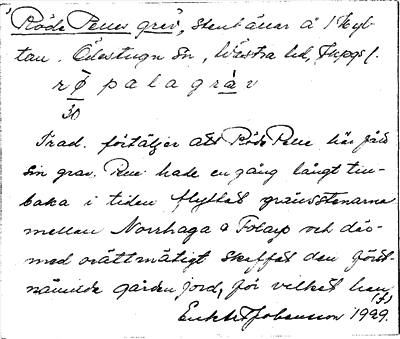 "Röde Pelles grav", stenbänar å 1 kyl-
tan. Ödestugu sn, Västra hd, Jkpgs l.
r ø p a l a g r à v
30
Trad. förtäljer att Röde Pelle här fått
sin grav. Pelle hade en gång långt till-
baka i tiden flyttat gränsstenarna
mellan Norrhaga o Folarp och där-
med orättmätigt skaffat den först-
nämnda gården jord, för vilket han
(f)
Johansson 1929.